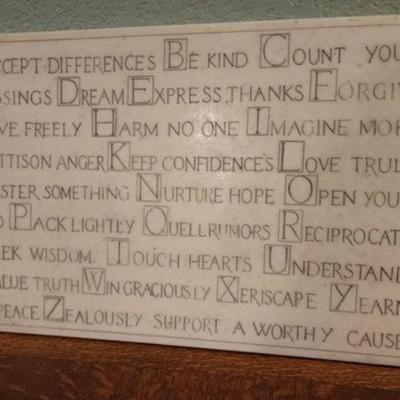 CCEPT DIFFERENCES BE KIND COUNT YOU
SSINGS DREAM EXPRESS THANKS FORGIV
VE FREELY HARM NO ONE IMAGINE MOR
TTISON ANGER KEEP CONFIDENCES LOVE TRUL
STER SOMETHING NURTURE HOPE OPEN YOU
D PACK LIGHTLY QUELL RUMORS RECIPROCAT
EK WISDOM TOUCH HEARTS UNDERSTAND
ALUE TRUTH WIN GRACIOUSLY XERISCAPE YEARN
PEACE ZEALOUSLY SUPPORT A WORTHY CAUSE